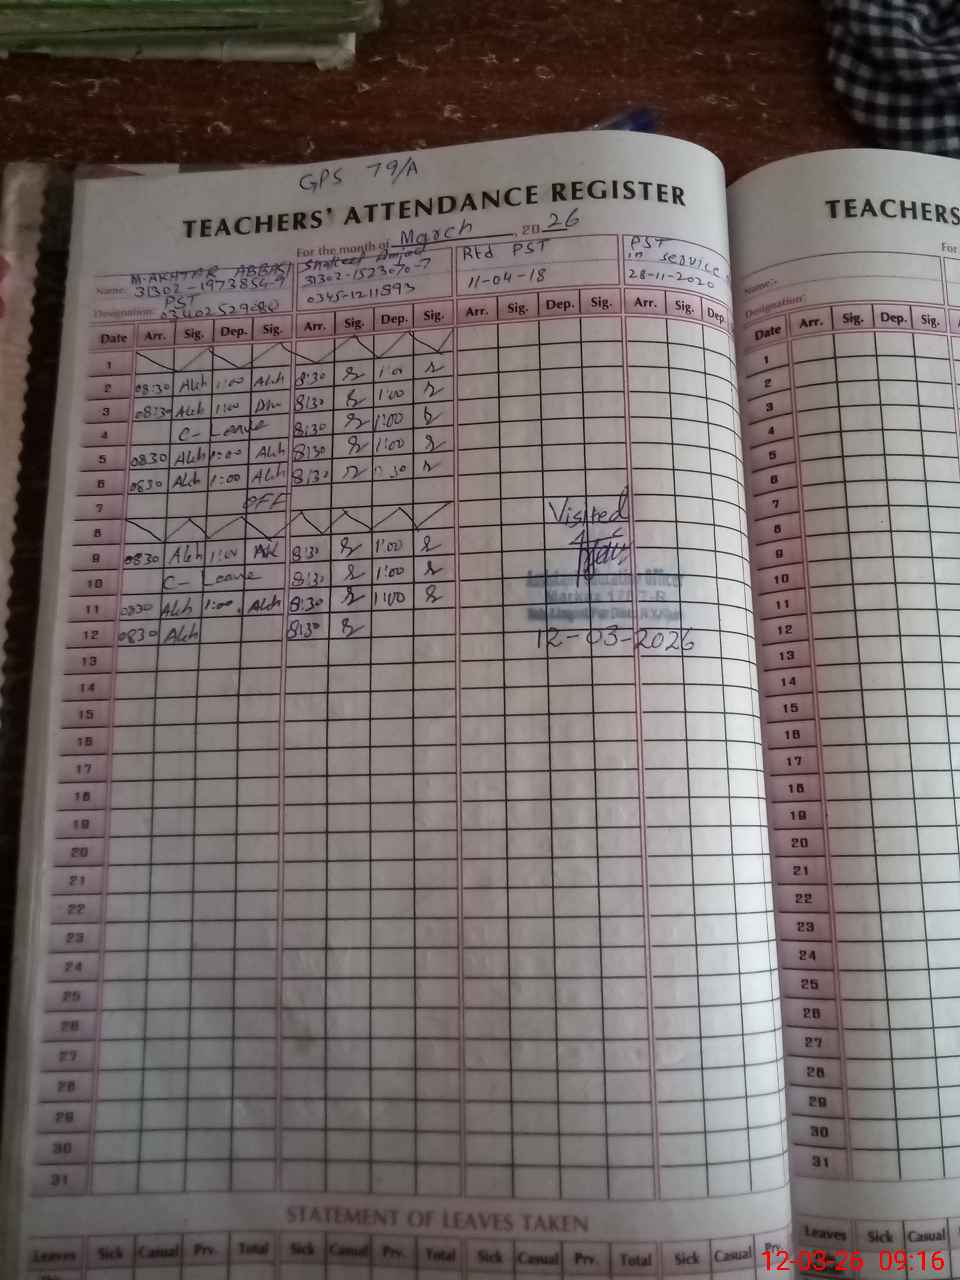 GPS 79/A
TEACHERS' ATTENDANCE REGISTER
For the month of March, 2026
Name: M. AKHTAR ABBASI
31302-1973854-9
Designation: PST
Shakeel Amjad
31302-1523070-7
0345-1211593
Rtd PST
11-04-18
PST
in service
28-11-2020
Date Arr. Sig. Dep. Sig. Arr. Sig. Dep. Sig. Arr. Sig. Dep. Sig. Arr. Sig. Dep.
1
2 08:30 Akh 1:00 Akh 8:30 1:00
3 08:30 Akh 1:00 8:30 1:00
4 C- Leave 8:30 1:00
5 0830 Akh 1:00 Akh 8:30 1:00
6 0830 Akh 1:00 Akh 8:30
7 OFF
8
9 0830 Akh 1:00 Akh 8:30 1:00
10 C- Leave 8:30 1:00
11 0830 Akh 1:00 Akh 8:30 1:00
12 0830 Akh 8:30
Visited
12-03-2026
13
14
15
16
17
18
19
20
21
22
23
24
25
26
27
28
29
30
31
STATEMENT OF LEAVES TAKEN
Leaves Sick Casual Prv. Total Sick Casual Prv. Total Sick Casual Prv. Total Sick Casual Prv.
TEACHERS
For
Name:-
Designation:
Date Arr. Sig. Dep. Sig.
1
2
3
4
5
6
7
8
9
10
11
12
13
14
15
16
17
18
19
20
21
22
23
24
25
26
27
28
29
30
31
Leaves Sick Casual
12-03-26 09:16